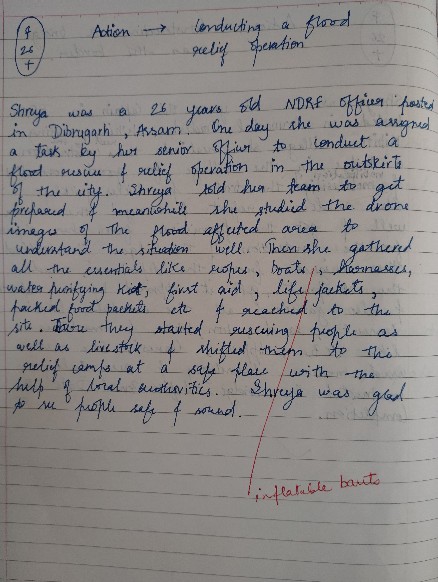 F
26
+
Action → Conducting a flood
relief operation
Shreya was a 26 years old NDRF officer posted
in Dibrugarh, Assam. One day she was assigned
a task by her senior officer to conduct a
flood rescue & relief operation in the outskirts
of the city. Shreya told her team to get
prepared & meanwhile she studied the drone
images of the flood affected area to
understand the situation well. Then she gathered
all the essentials like ropes, boats, harnesses,
water purifying kit, first aid, life jackets,
packed food packets etc & reached to the
site. There they started rescuing people as
well as livestock & shifted them to the
relief camps at a safe place with the
help of local authorities. Shreya was glad
to see people safe & sound.
inflatable